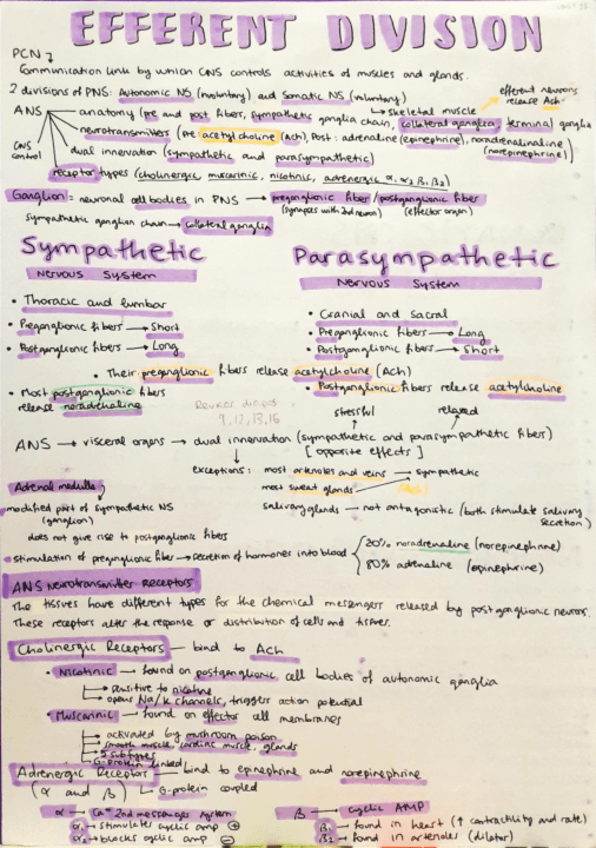 EFFERENT DIVISION
PCN
Communication link by which CNS controls activities of muscles and glands.
2 divisions of PNS: Autonomic NS (involuntary) and Somatic NS (voluntary)
skeletal muscle
efferent neurons
release Ach
ANS
CNS
control
anatomy (pre and post fibers, sympathetic ganglia chain, collateral ganglia, terminal ganglia
neurotransmitters (pre: acetylcholine (Ach), Post: adrenaline (epinephrine), noradrenaline
(norepinephrine))
dual innervation (sympathetic and parasympathetic)
receptor types (cholinergic, muscarinic, nicotinic, adrenergic α1 α2 β1 β2)
Ganglion: neuronal cell bodies in PNS → preganglionic fiber / postganglionic fiber
(synapses with 2nd neuron) (effector organ)
sympathetic ganglion chain → collateral ganglia
Sympathetic
Nervous System
• Thoracic and lumbar
• Preganglionic fibers → Short
• Postganglionic fibers → Long
Parasympathetic
Nervous System
• Cranial and Sacral
• Preganglionic fibers → Long
• Postganglionic fibers → Short
• Their preganglionic fibers release acetylcholine (Ach)
• Most postganglionic fibers
release noradrenaline
• Postganglionic fibers release acetylcholine
9, 12, 13, 15
stressful relaxed
ANS → visceral organs → dual innervation (sympathetic and parasympathetic fibers)
[opposite effects]
exceptions: most arterioles and veins → sympathetic
most sweat glands
salivary glands — not antagonistic (both stimulate salivary
secretion)
Adrenal medulla
modified part of sympathetic NS
(ganglion)
does not give rise to postganglionic fibers
stimulation of preganglionic fiber → secretion of hormones into blood
20% noradrenaline (norepinephrine)
80% adrenaline (epinephrine)
ANS Neurotransmitter Receptors
The tissues have different types for the chemical messengers released by postganglionic neurons.
These receptors alter the response or distribution of cells and tissues.
Cholinergic Receptors — bind to Ach
• Nicotinic — found on postganglionic cell bodies of autonomic ganglia
→ sensitive to nicotine
→ opens Na/K channels, triggers action potential
• Muscarinic — found on effector cell membranes
→ activated by mushroom poison
→ smooth muscle, cardiac muscle, glands
→ 5 subtypes
→ G-protein linked
Adrenergic Receptors — bind to epinephrine and norepinephrine
(α and β) G-protein coupled
α → Ca 2nd messenger system
α1 → stimulates cyclic amp +
α2 → blocks cyclic amp −
β → cyclic AMP
β1 → found in heart (↑ contractility and rate)
β2 → found in arterioles (dilator)